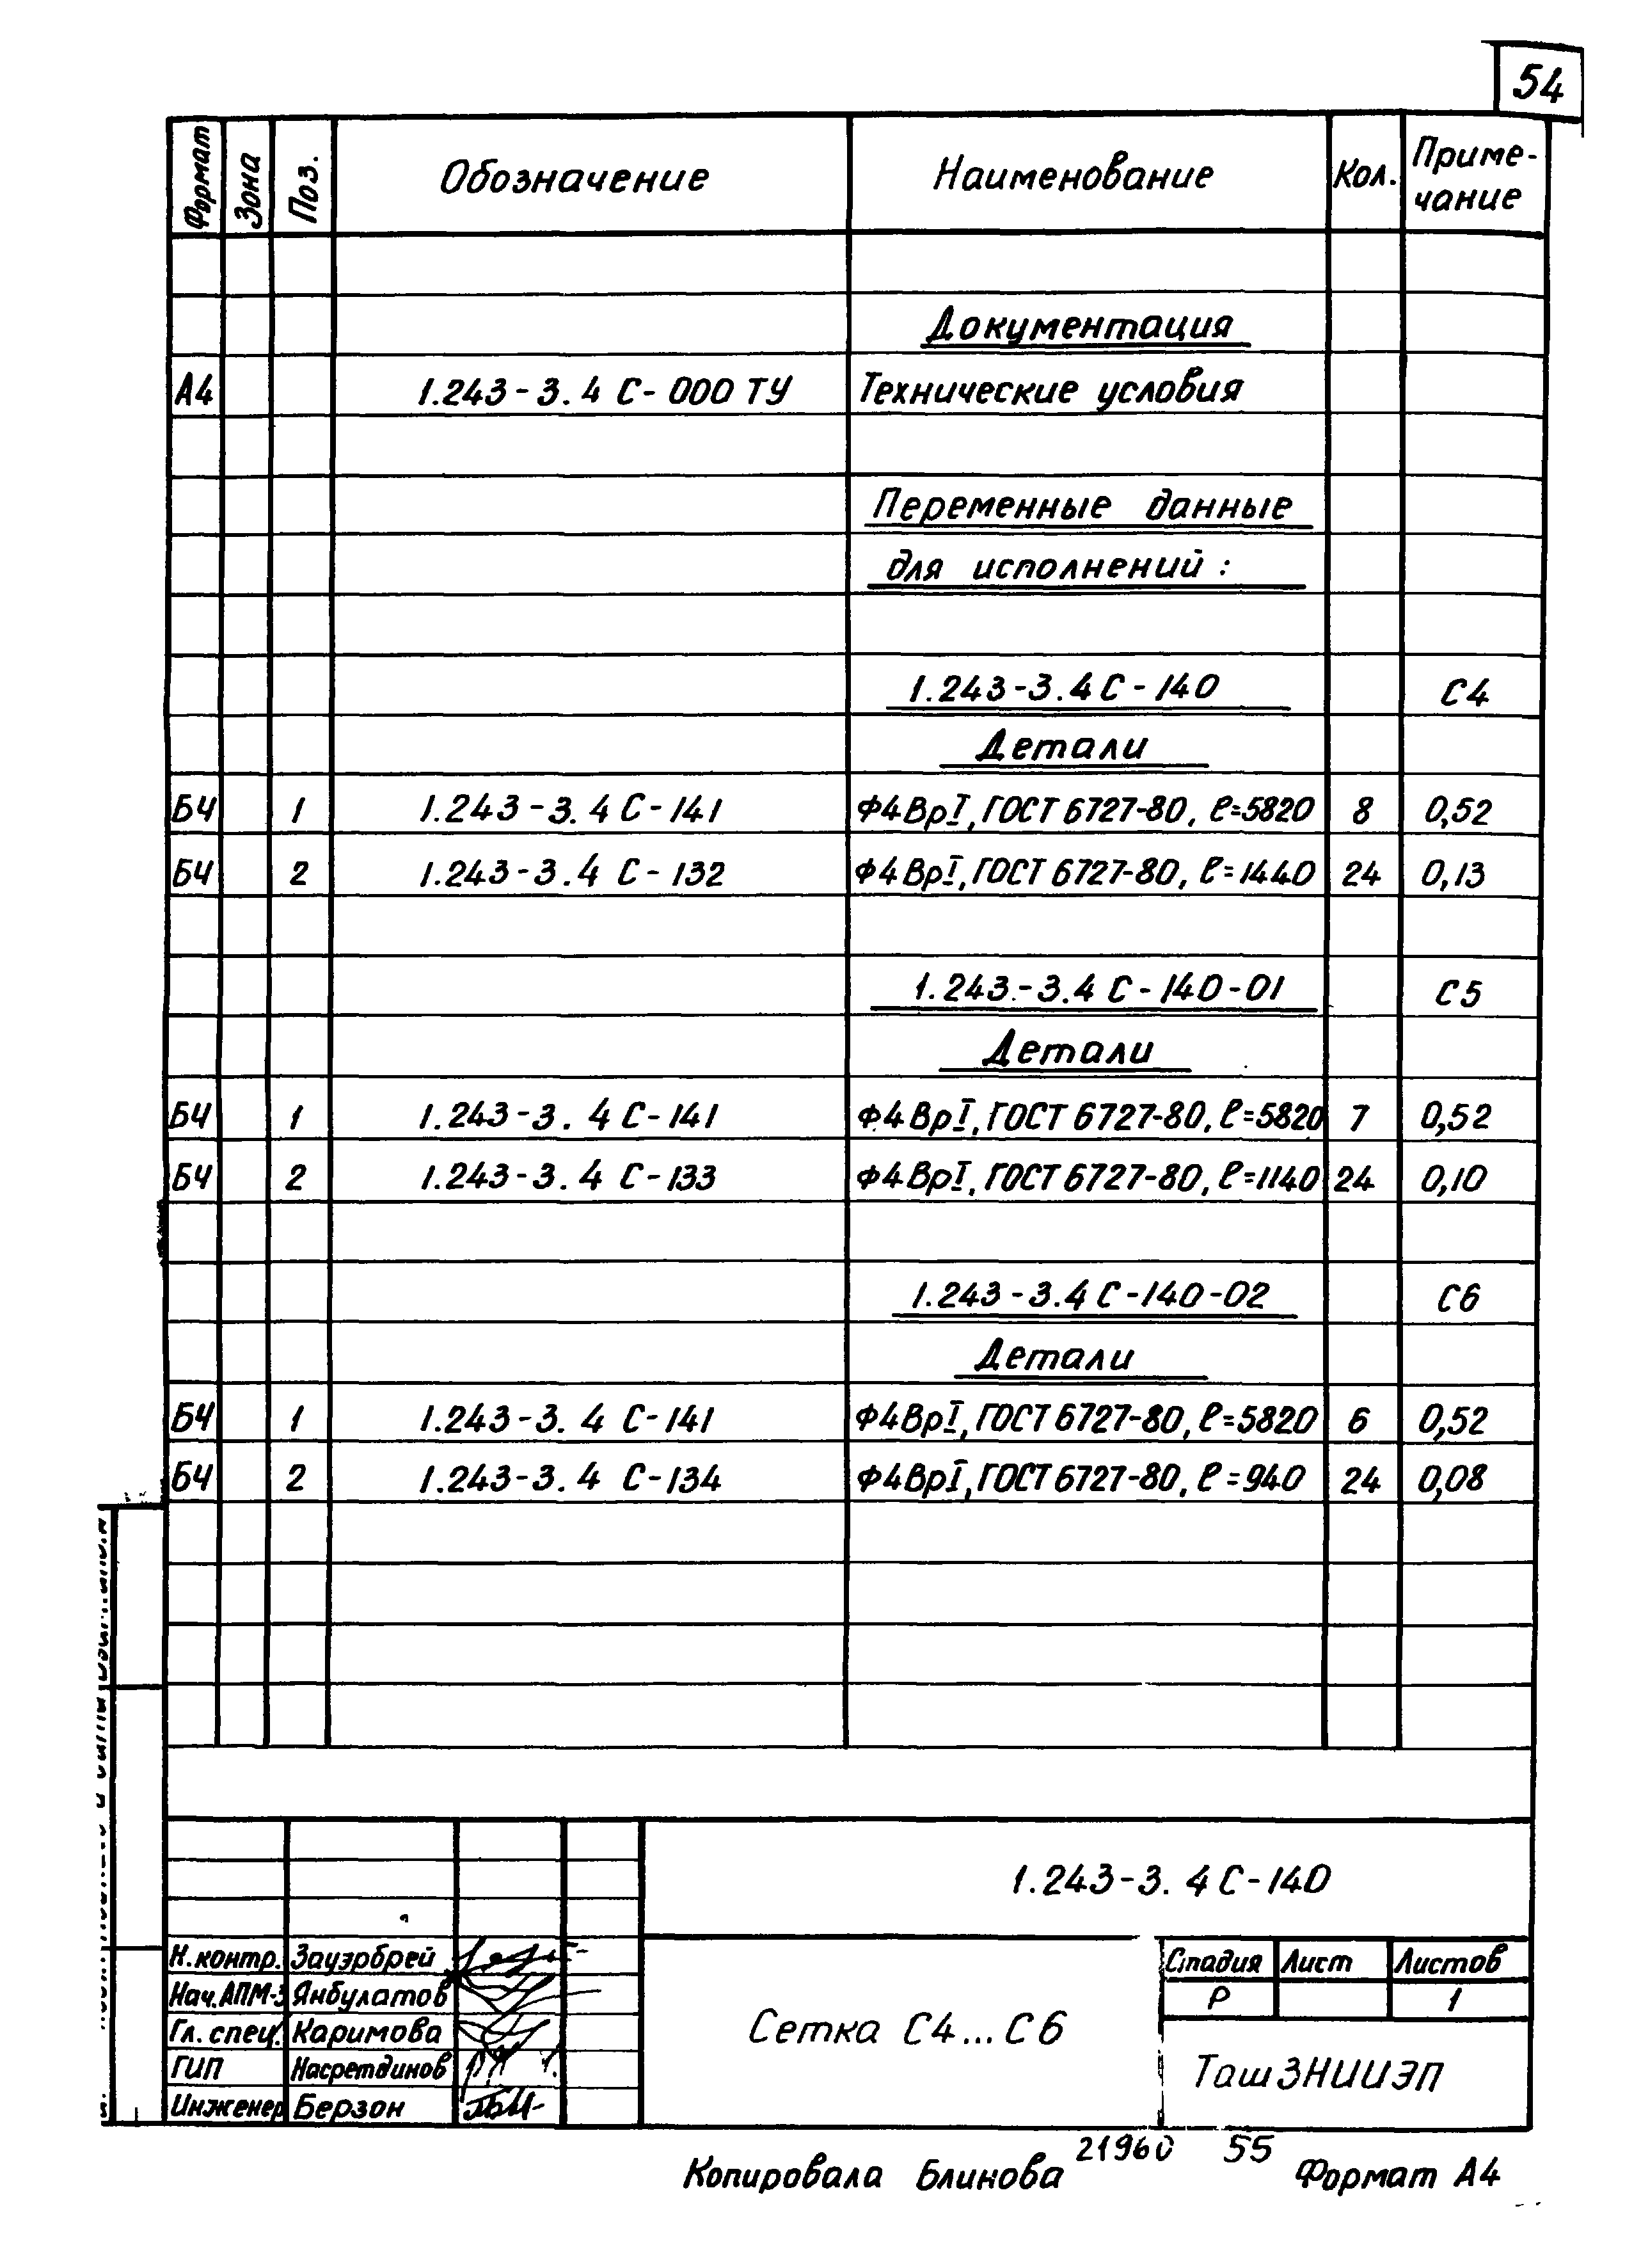 54
Формат Зона Поз. Обозначение Наименование Кол. Приме-
чание
Документация
А4 1.243-3.4 С-000 ТУ Технические условия
Переменные данные
для исполнений:
1.243-3.4 С-140 С4
Детали
БЧ 1 1.243-3.4 С-141 Ф4ВрI, ГОСТ 6727-80, ℓ=5820 8 0,52
БЧ 2 1.243-3.4 С-132 Ф4ВрI, ГОСТ 6727-80, ℓ=1440 24 0,13
1.243-3.4 С-140-01 С5
Детали
БЧ 1 1.243-3.4 С-141 Ф4ВрI, ГОСТ 6727-80, ℓ=5820 7 0,52
БЧ 2 1.243-3.4 С-133 Ф4ВрI, ГОСТ 6727-80, ℓ=1140 24 0,10
1.243-3.4 С-140-02 С6
Детали
БЧ 1 1.243-3.4 С-141 Ф4ВрI, ГОСТ 6727-80, ℓ=5820 6 0,52
БЧ 2 1.243-3.4 С-134 Ф4ВрI, ГОСТ 6727-80, ℓ=940 24 0,08
1.243-3.4 С-140
Н.контр. Зауэрбрей
Нач.АПМ-3 Янбулатов
Гл. спец. Каримова
ГИП Насретдинов
Инженер Берзон
Сетка С4...С6
Стадия Лист Листов
Р 1
ТашЗНИИЭП
21960 55
Копировала Блинова Формат А4